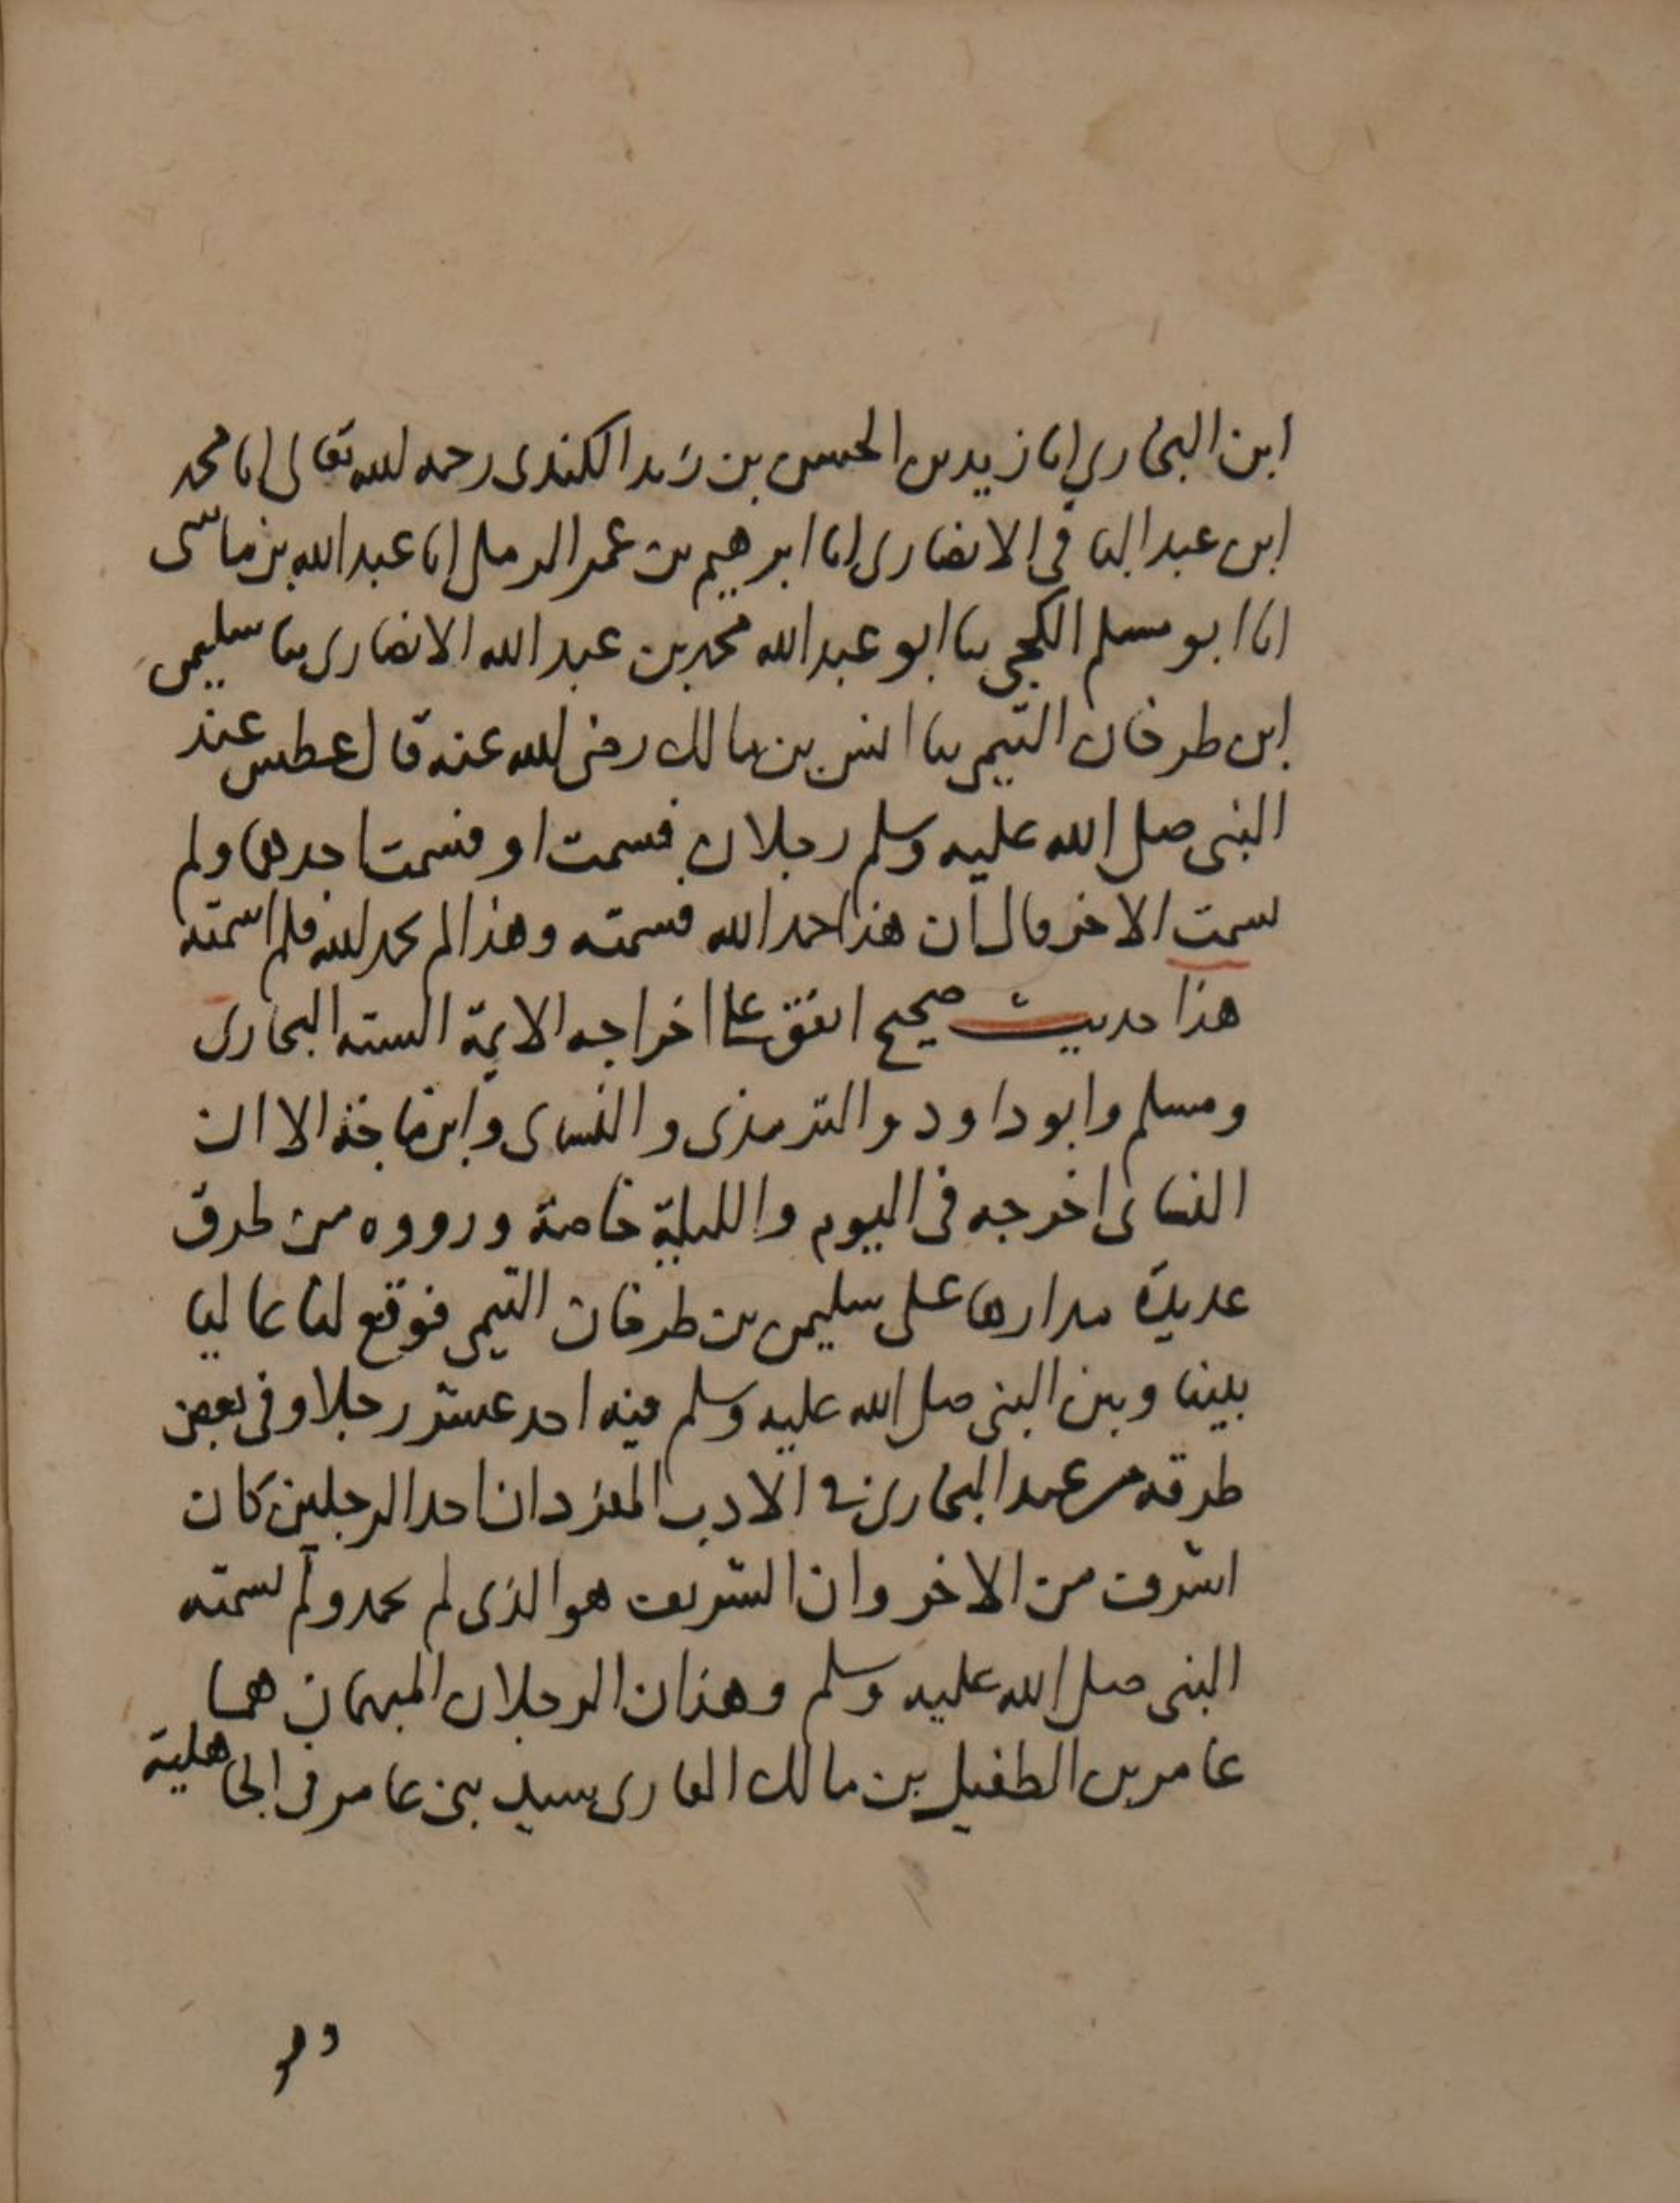 ابن البخاري انا زيد بن الحسن بن زيد الكندي رحمه الله تعالى انا محمد
ابن عبد الباقي الانصاري انا ابرهيم بن عمر البرمكي انا عبد الله بن ماسى
انا ابو مسلم الكجي ثنا ابو عبد الله محمد بن عبد الله الانصاري ثنا سليمن
ابن طرخان التيمي ثنا انس بن مالك رضى الله عنه قال عطس عند
النبى صلى الله عليه وسلم رجلان فسمت او فشمت احدهما ولم
يسمت الاخر فقال ان هذا حمد الله فسمته وهذا لم يحمد الله فلم اسمته
هذا حديث صحيح اتفق على اخراجه الايمة الستة البخارى
ومسلم وابو داود والترمذى والنسائى وابن ماجة الا ان
النسائى اخرجه فى اليوم والليلة خاصة ورووه من طرق
عديدة مدارها على سليمن بن طرخان التيمى فوقع لنا عاليا
بيننا وبين النبى صلى الله عليه وسلم فيه احد عشر رجلا وفى بعض
طرقه عند البخارى فى الادب المفرد ان احد الرجلين كان
اشرف من الاخر وان الشريف هو الذى لم يحمد ولم يسمته
النبى صلى الله عليه وسلم وهذان الرجلان المبهمان هما
عامر بن الطفيل بن مالك العامرى سيد بنى عامر فى الجاهلية
وهو